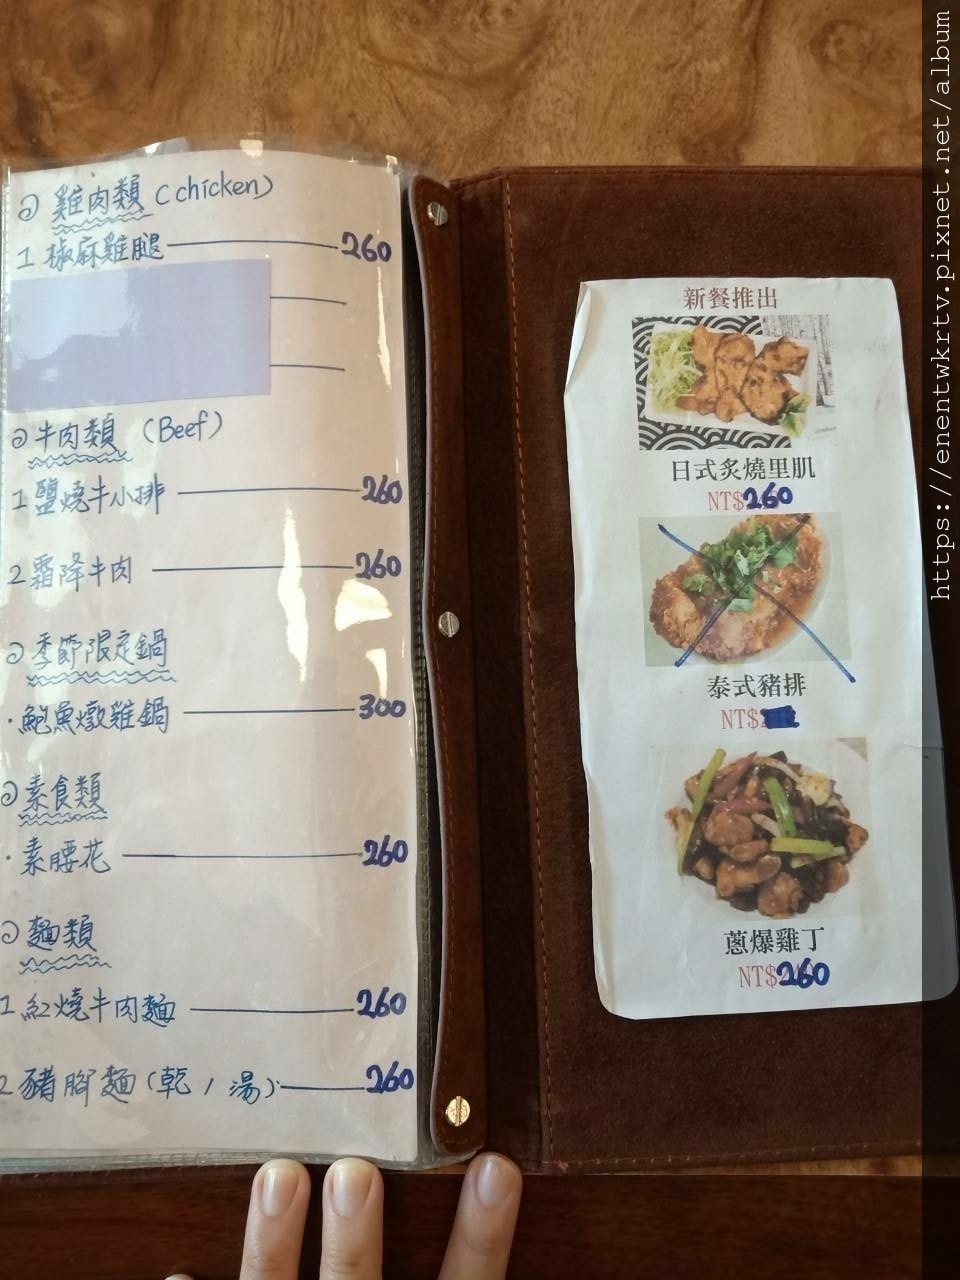 雞肉類 (chicken)
1 椒麻雞腿 260
牛肉類 (Beef)
1 鹽燒牛小排 260
2 霜降牛肉 260
季節限定鍋
· 鮑魚燉雞鍋 300
素食類
· 素腰花 260
麵類
1 紅燒牛肉麵 260
2 豬腳麵 (乾/湯) 260
新餐推出
日式炙燒里肌
NT$260
泰式豬排
NT$2
蔥爆雞丁
NT$260
https://enentwkrtv.pixnet.net/album